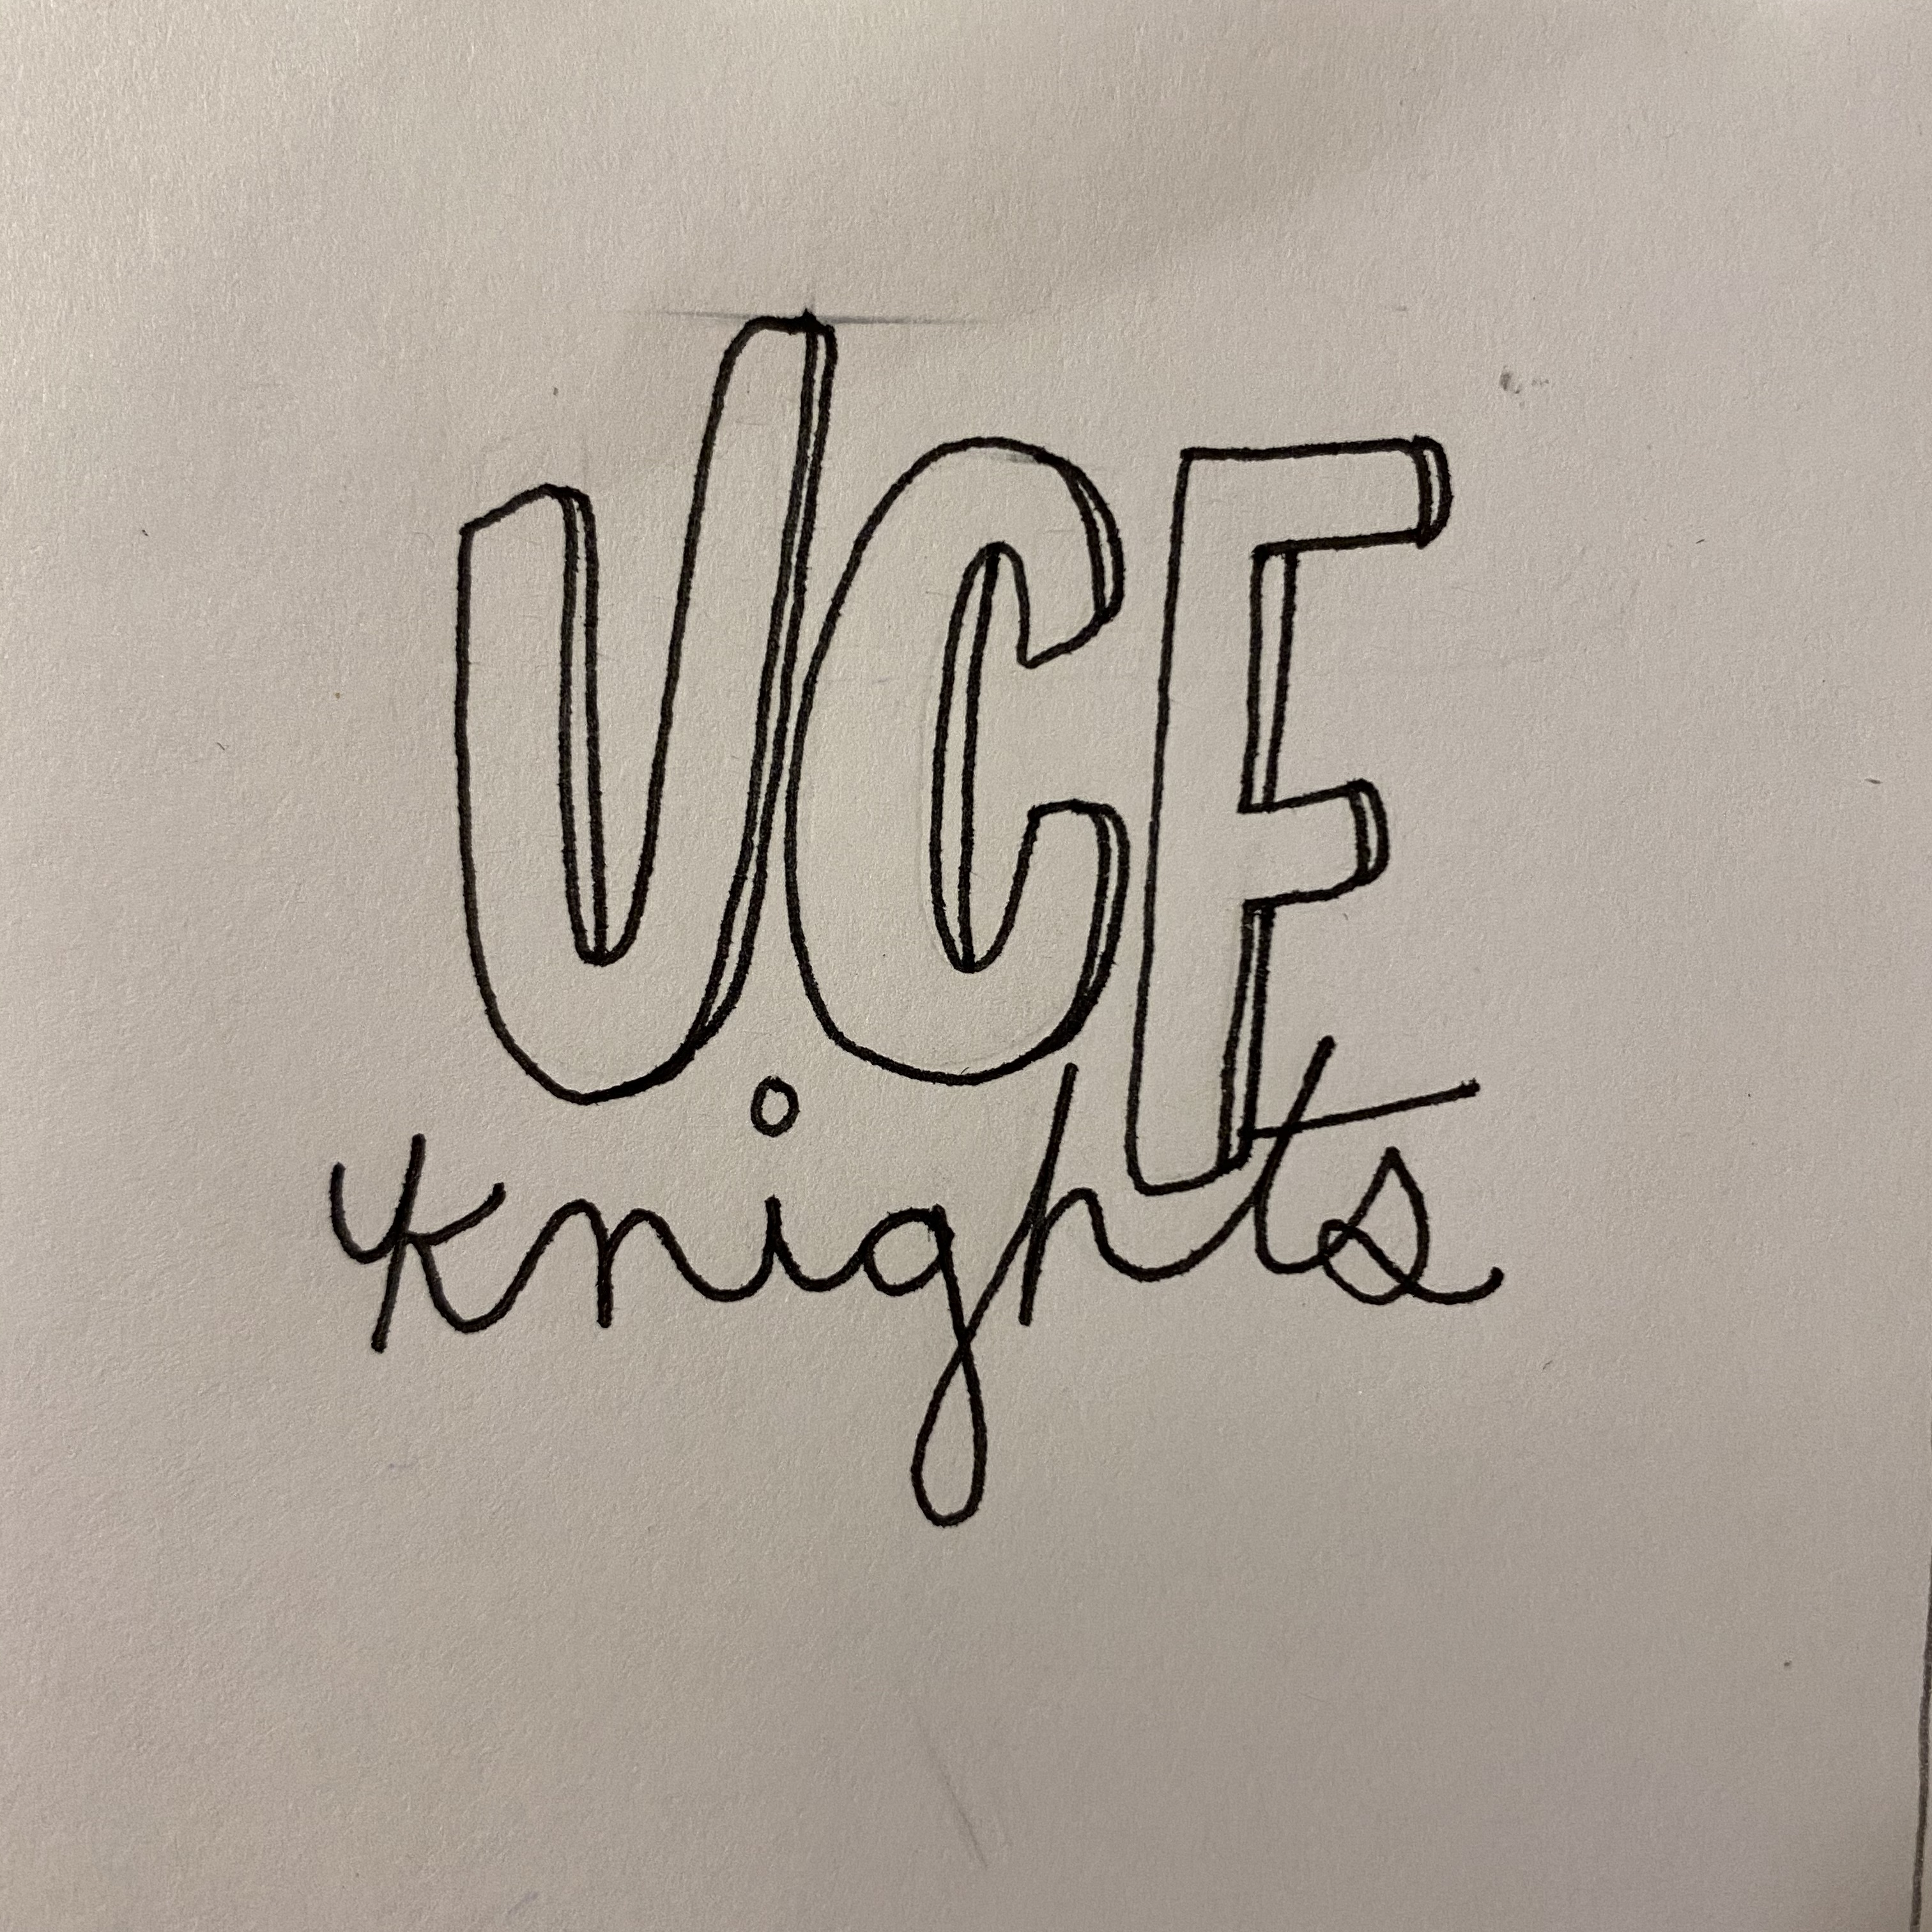 UCF
knights